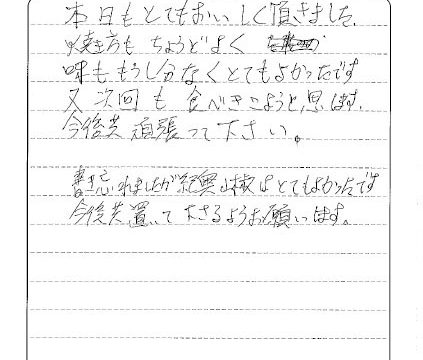 本日もとてもおいしく頂きました。
焼き方もちょうどよく
味ももうし分なくとてもよかったです
又次回も食べきようと思います。
今後共頑張って下さい。
書き忘れましたが紀州山椒はとてもよかったです
今後共置いて下さるようお願いします。